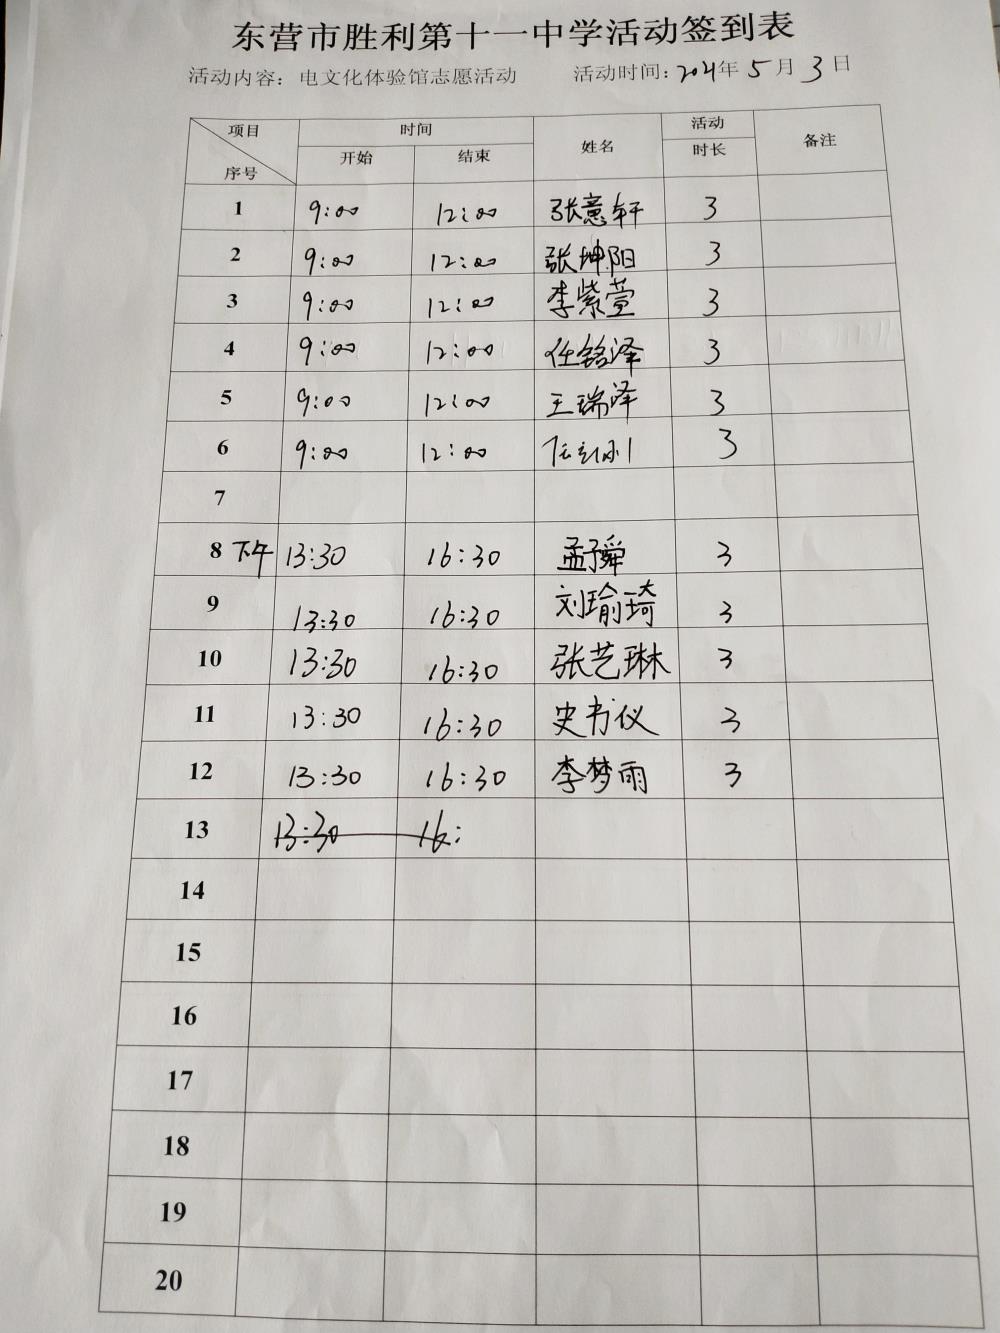 东营市胜利第十一中学活动签到表
活动内容：电文化体验馆志愿活动 活动时间：2021年5月3日
项目 时间 姓名 活动 备注
序号 开始 结束 时长
1 9:00 12:00 张意轩 3
2 9:00 12:00 张坤阳 3
3 9:00 12:00 李紫萱 3
4 9:00 12:00 任铭泽 3
5 9:00 12:00 王瑞泽 3
6 9:00 12:00 3
7
8 下午 13:30 16:30 孟子舜 3
9 13:30 16:30 刘瑜琦 3
10 13:30 16:30 张艺琳 3
11 13:30 16:30 史书仪 3
12 13:30 16:30 李梦雨 3
13 13:30 16:
14
15
16
17
18
19
20